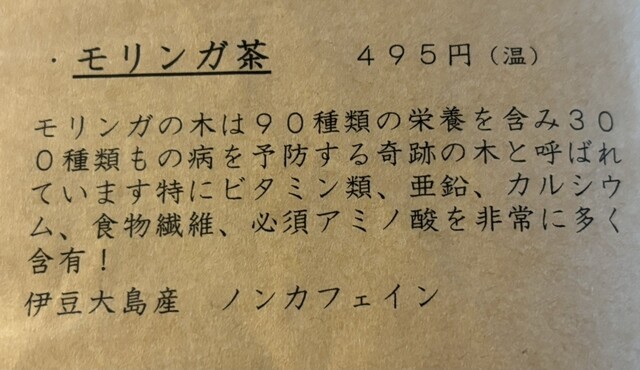 ・モリンガ茶　　４９５円（温）
モリンガの木は９０種類の栄養を含み３０
０種類もの病を予防する奇跡の木と呼ばれ
ています特にビタミン類、亜鉛、カルシウ
ム、食物繊維、必須アミノ酸を非常に多く
含有！
伊豆大島産　ノンカフェイン